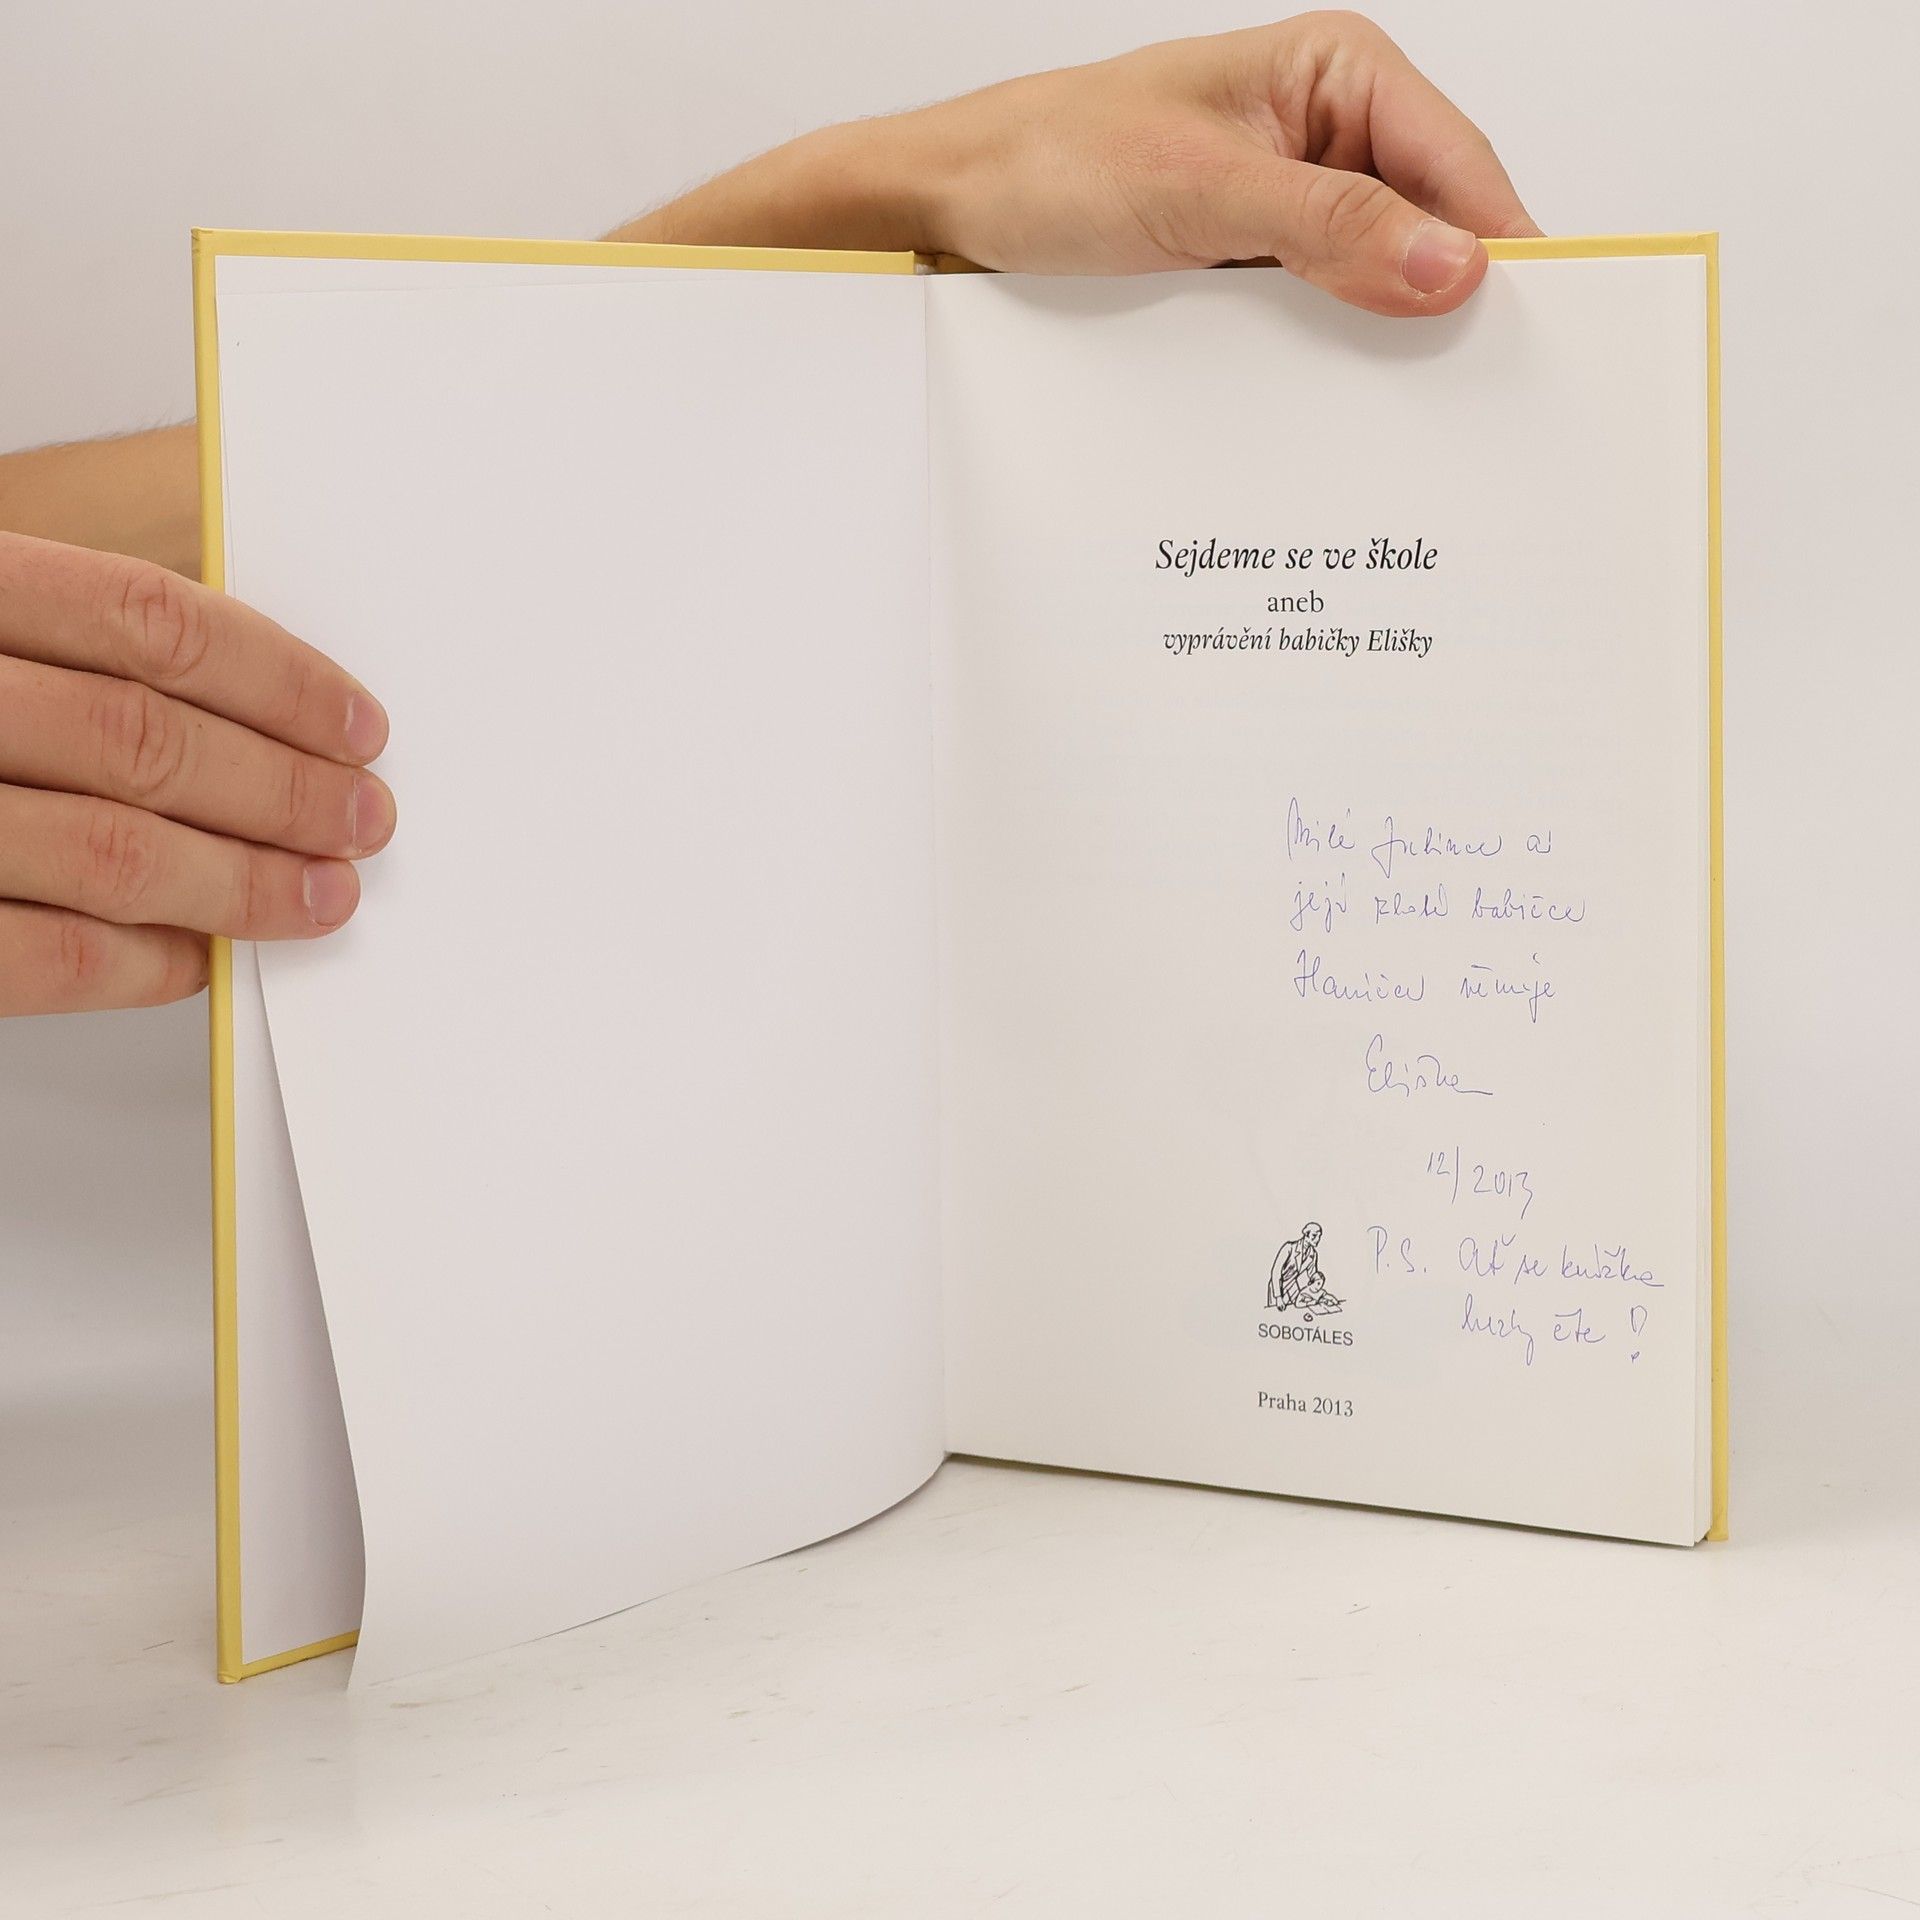 Sejdeme se ve škole
aneb
vyprávění babičky Elišky
Milé Julince a
její zlaté babičce
Haničce věnuje
Eliška
12/2013
P.S. Ať se knížka
hezky čte!
SOBOTÁLES
Praha 2013